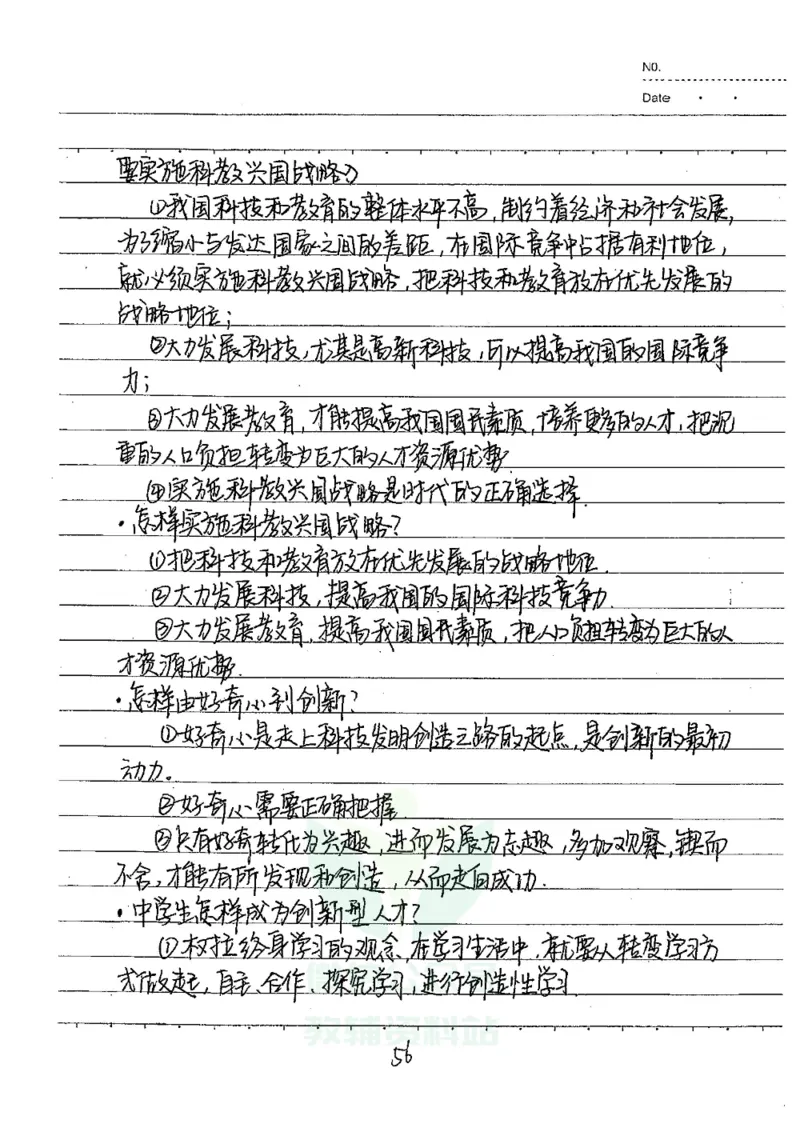 NO.
Date
要实施科教兴国战略?)
①我国科技和教育的整体水平不高,制约着经济和社会发展,
为了缩小与发达国家之间的差距,在国际竞争中占据有利地位,
就必须实施科教兴国战略,把科技和教育放在优先发展的
战略地位;
②大力发展科技,尤其是高新科技,可以提高我国的国际竞争
力;
③大力发展教育,才能提高我国国民素质,培养更多的人才,把沉
重的人口负担转变为巨大的人才资源优势.
④实施科教兴国战略是时代的正确选择.
·怎样实施科教兴国战略?
①把科技和教育放在优先发展的战略地位.
②大力发展科技,提高我国的国际科技竞争力.
③大力发展教育,提高我国国民素质,把人口负担转变为巨大的人
才资源优势.
·怎样由好奇心到创新?
①好奇心是走上科技发明创造之路的起点,是创新的最初
动力。
②好奇心需要正确把握.
③只有好奇转化为兴趣,进而发展为志趣,多加观察,锲而
不舍,才能有所发现和创造,从而走向成功.
·中学生怎样成为创新型人才?
①树立终身学习的观念,在学习生活中,就要从转变学习方
式做起,自主、合作、探究学习,进行创造性学习.
教辅资料站
56